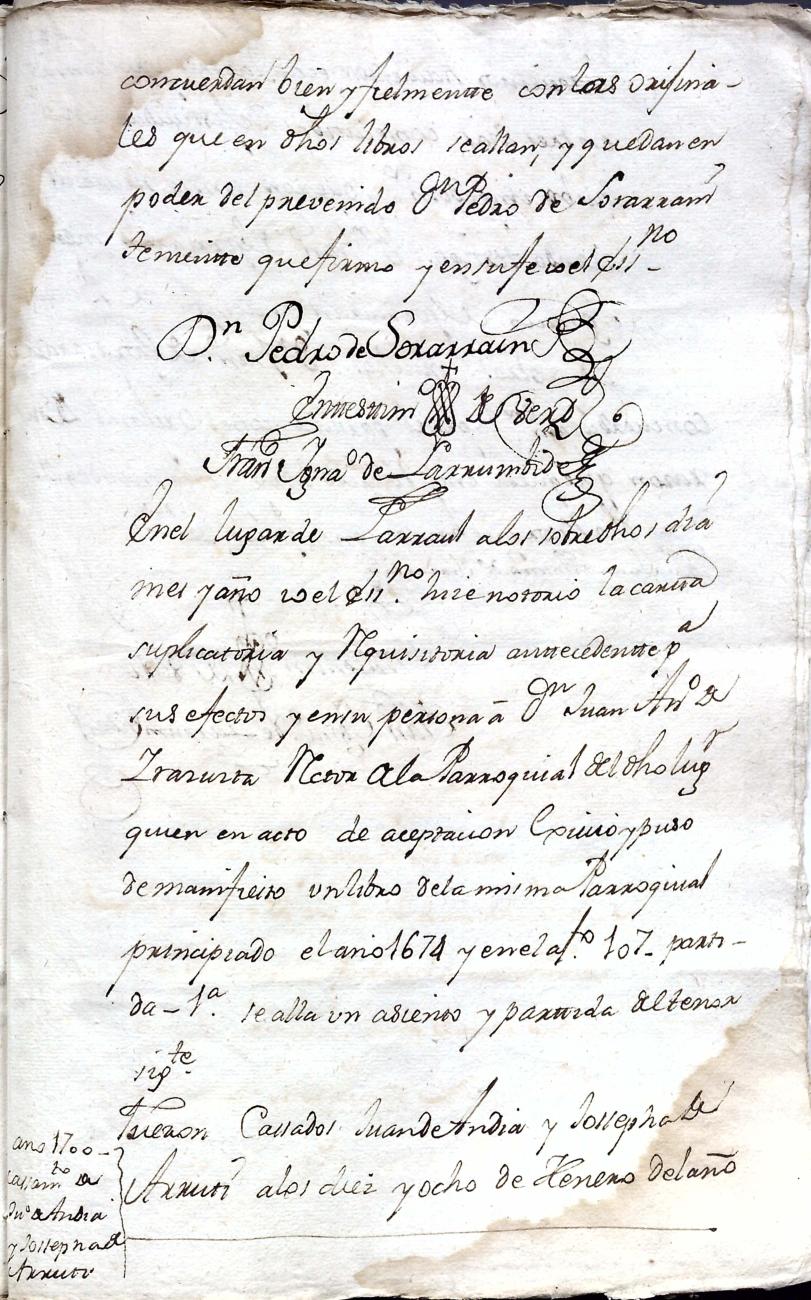 concuerdan bien y fielmentte con las orijina-
les que en dhos libros se allan, y quedan en
poder del prevenido Dn Pedro de Sorarrain
teniente que firmo y en su fe io el essno
Dn. Pedro de Sorarrain
En ttesttimo de Verd
Frano Ignao de Larrumbide
En el lugar de Larraul a los sobre dhos dia
mes y año io el essno. hize notorio la cartta
suplicatoria y Rquisitoria anttecedentte pa
sus efectos y en su persona a Dn Juan Anto de
Yrazusta Rctor de la Parroquial del dho lugr
quien en acto de aceptacion Exivio y puso
de manifiesto un libro de la misma Parroquial
principiado el año 1674 y en el a fo. 107- parti-
da-1a. se alla un asiento y parttida del tenor
sigte.
Fueron Cassados Juan de Andia y Josepha de
Arruti a los diez y ocho de Henero del año
año 1700-
cassamto de
Juo de Andia
y Josepha de
Arruti